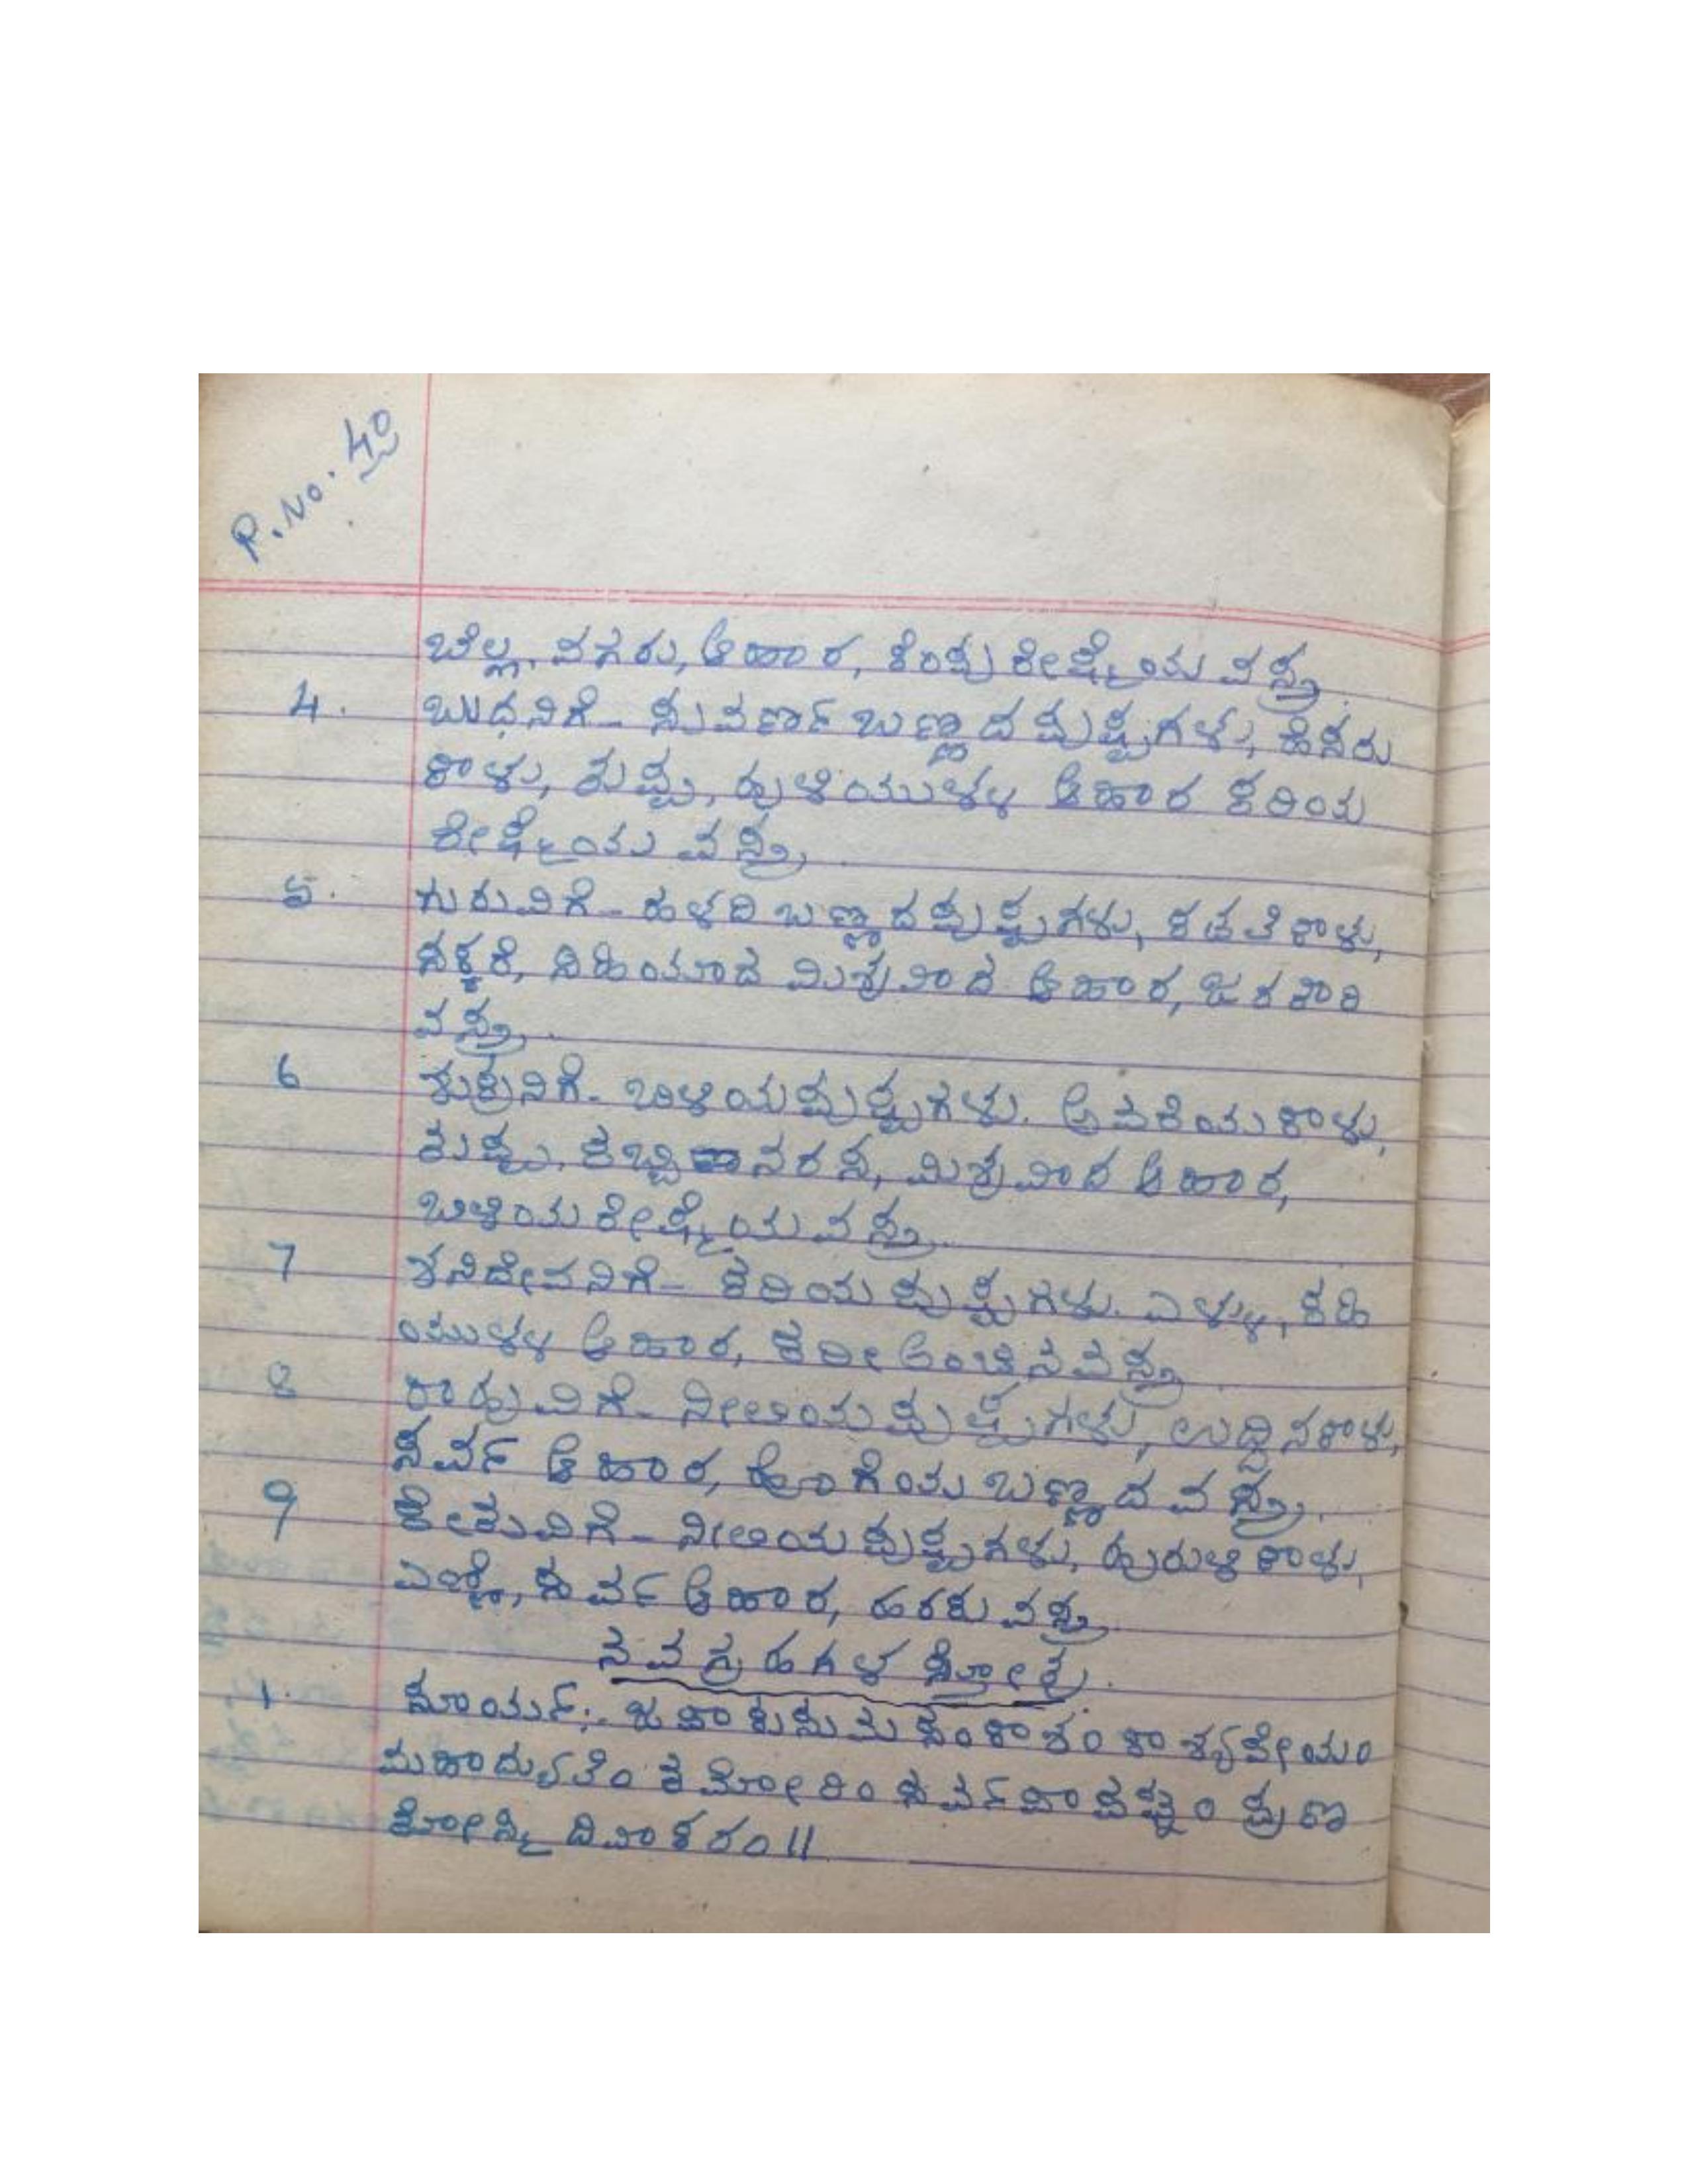 P. No. 40
ಬೆಲ್ಲ, ವಗರು, ಆಹಾರ, ಕೆಂಪು ರೇಷ್ಮೆಯ ವಸ್ತ್ರ.
4. ಬುಧನಿಗೆ- ಸುವರ್ಣ ಬಣ್ಣದ ಪುಷ್ಪಗಳು, ಹೆಸರು
ಕಾಳು, ತುಪ್ಪ, ಹುಳಿಯುಳ್ಳ ಆಹಾರ ಕರಿಯ
ರೇಷ್ಮೆಯ ವಸ್ತ್ರ.
5. ಗುರುವಿಗೆ- ಹಳದಿ ಬಣ್ಣದ ಪುಷ್ಪಗಳು, ಕಡಲೆಕಾಳು,
ಸಕ್ಕರೆ, ಸಿಹಿಯಾದ ಮಿಶ್ರವಾದ ಆಹಾರ, ಜರತಾರಿ
ವಸ್ತ್ರ.
6 ಶುಕ್ರನಿಗೆ- ಬಿಳಿಯ ಪುಷ್ಪಗಳು. ಅವರೆಯ ಕಾಳು,
ತುಪ್ಪ, ಕಬ್ಬಿನರಸ, ಮಿಶ್ರವಾದ ಆಹಾರ,
ಬಿಳಿಯ ರೇಷ್ಮೆಯ ವಸ್ತ್ರ.
7 ಶನಿದೇವನಿಗೆ- ಕರಿಯ ಪುಷ್ಪಗಳು. ಎಳ್ಳು, ಕಹಿ
ಯುಳ್ಳ ಆಹಾರ, ಕರೀ ಅಂಚಿನ ವಸ್ತ್ರ.
8 ರಾಹುವಿಗೆ- ನೀಲಿಯ ಪುಷ್ಪಗಳು, ಉದ್ದಿನಕಾಳು,
ಸರ್ವ ಆಹಾರ, ಹೊಗೆಯ ಬಣ್ಣದ ವಸ್ತ್ರ.
9 ಕೇತುವಿಗೆ- ನೀಲಿಯ ಪುಷ್ಪಗಳು, ಹುರುಳಿಕಾಳು,
ಎಣ್ಣೆ, ಸರ್ವ ಆಹಾರ, ಹರಕು ವಸ್ತ್ರ.
ನವಗ್ರಹಗಳ ಸ್ತೋತ್ರ.
1. ಸೂರ್ಯ:- ಜಪಾಕುಸುಮ ಸಂಕಾಶಂ ಕಾಶ್ಯಪೇಯಂ
ಮಹಾದ್ಯುತಿಂ ತಮೋರಿಂ ಸರ್ವಪಾಪಘ್ನಂ ಪ್ರಣ
ತೋಸ್ಮಿ ದಿವಾಕರಂ॥